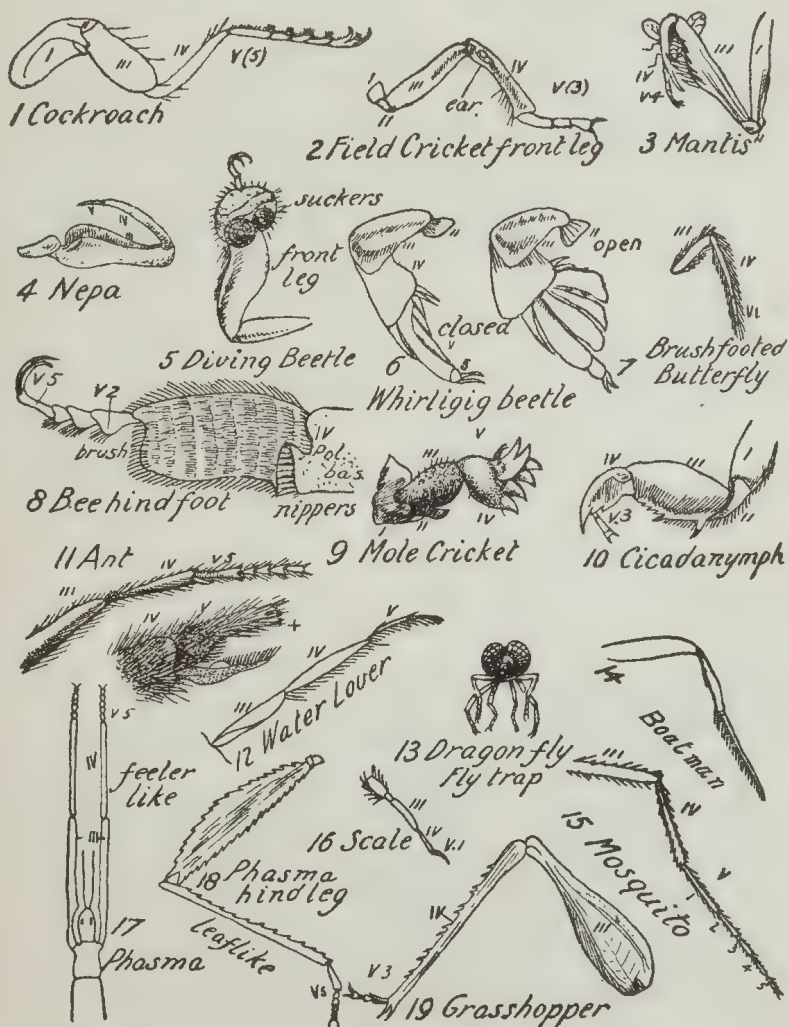 I III IV V(5)
1 Cockroach
I II III ear. IV V(3)
2 Field Cricket front leg
IV V4 III I II
3 Mantis
V IV III
4 Nepa
suckers
front
leg
5 Diving Beetle
II III IV
closed
V 5
6
II III open
7
Whirligig beetle
III IV V1
Brushfooted
Butterfly
V5 V2
brush
IV
Pol.
bas.
nippers
8 Bee hind foot
III V IV I II
9 Mole Cricket
IV III I II V.3
10 Cicada nymph
11 Ant
III IV V5
IV V +
III IV V
12 Water Lover
13 Dragon fly
Fly trap
14
Boatman
III IV V 1 2 3 4 5
15 Mosquito
III IV V.1
16 Scale
V5
IV
feeler
like
III
17
Phasma
18 Phasma
hind leg
leaflike
V5
IV III V3
19 Grasshopper